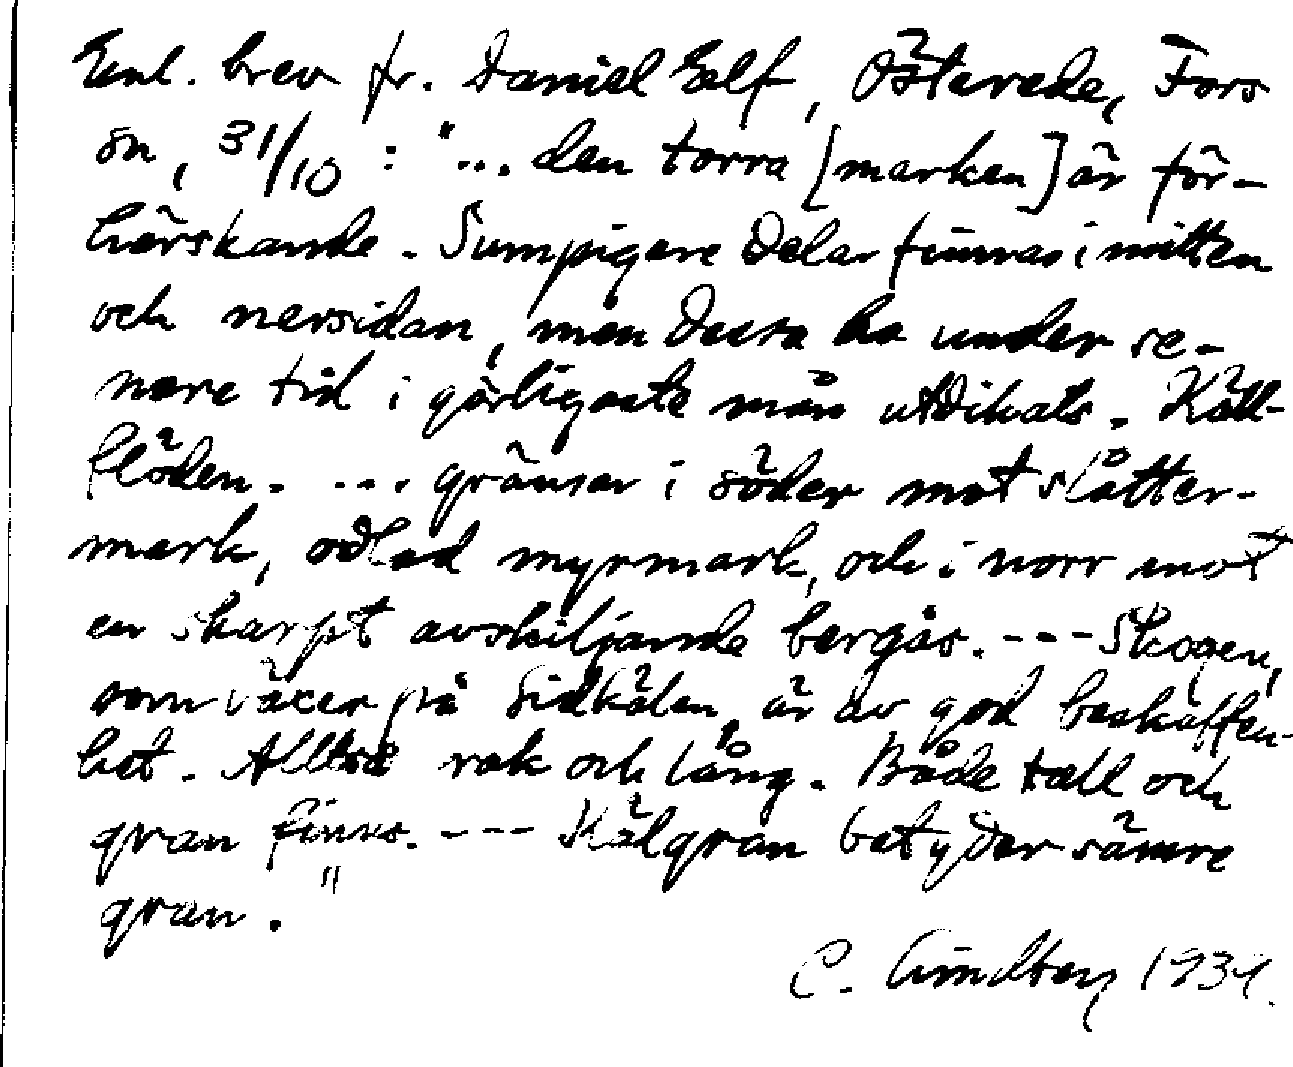 Enl. brev fr. Daniel Elf, Österede, Fors
sn, 31/10 : "... den torra [marken] är för-
härskande. Sumpigare delar finnas i mitten
och nersidan, men dessa ha under se-
nare tid i görligaste mån utdikats. Käll-
flöden. ... gränsar i söder mot slåtter-
mark, odlad myrmark, och i norr mot
en skarpt avskiljande bergås. --- Skogen,
som växer på Sidkälen, är av god beskaffen-
het. Alltså rak och lång. Både tall och
gran finns. --- Kälgran betyder sämre
gran."
C. Lindberg 1934.